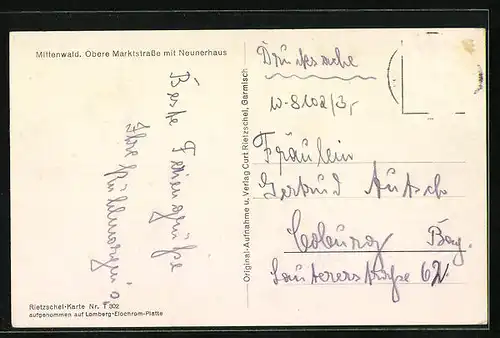 Mittenwald. Obere Marktstraße mit Neunerhaus
Beste Feriengrüße
Ihre
Rietzschel-Karte Nr. T 302
aufgenommen auf Lomberg-Elochrom-Platte
Original-Aufnahme u. Verlag Curt Rietzschel, Garmisch
Drucksache
Fräulein
Gertrud
Coburg Bay.
62